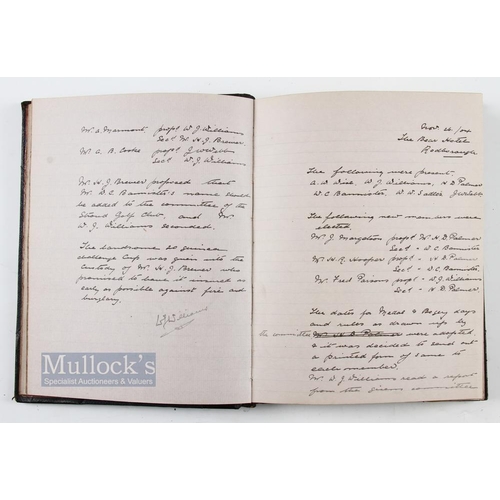 Mr A Marmont propd W. J. Williams
Secd Mr H. J. Brewer
Mr A. B. Cooke propd J. W. Webb
Secd W. J. Williams
Mr H. J. Brewer proposed that
Mr W. C. Bannister's name should
be added to the committee of the
Stroud Golf Club, and Mr
W. J. Williams seconded.
The handsome 20 guinean
challenge Cup was given into the
custody of Mr H. J. Brewer who
promised to have it insured as
early as possible against fire and
burglary.
W J Williams
Mullock's
Specialist Auctioneers & Valuers
Nov 16/04
The Bear Hotel
Rodborough
The following were present,
A. W. W. J. Williams, H. D. Palmer
W. C. Bannister, W. W. J. W. Webb
The following new members were
elected.
Mr J. Margetson propd Mr H. D. Palmer
Secd - W. C. Bannister
Mr H. R. Hooper propd - H. D. Palmer
Secd - W. C. Bannister.
Mr Fred Parsons propd - W. J. Williams
Secd - H. D. Palmer.
The dates for Medal & Bogey days
and rules as drawn up by
the committee Mr H. D. Palmer were adopted
& it was decided to send out
a printed form of same to
each member.
Mr W. J. Williams read a report
from the green committee